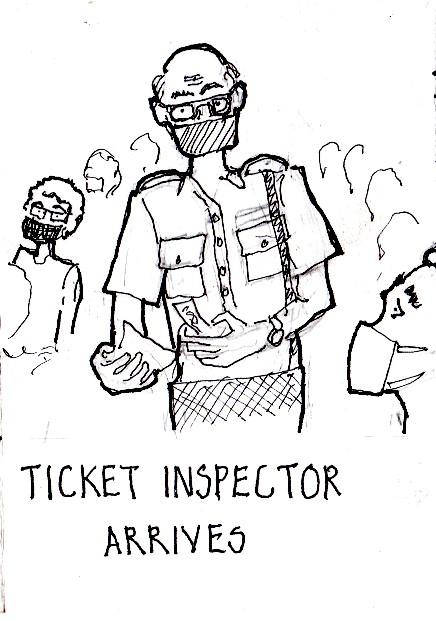 TICKET INSPECTOR
ARRIVES